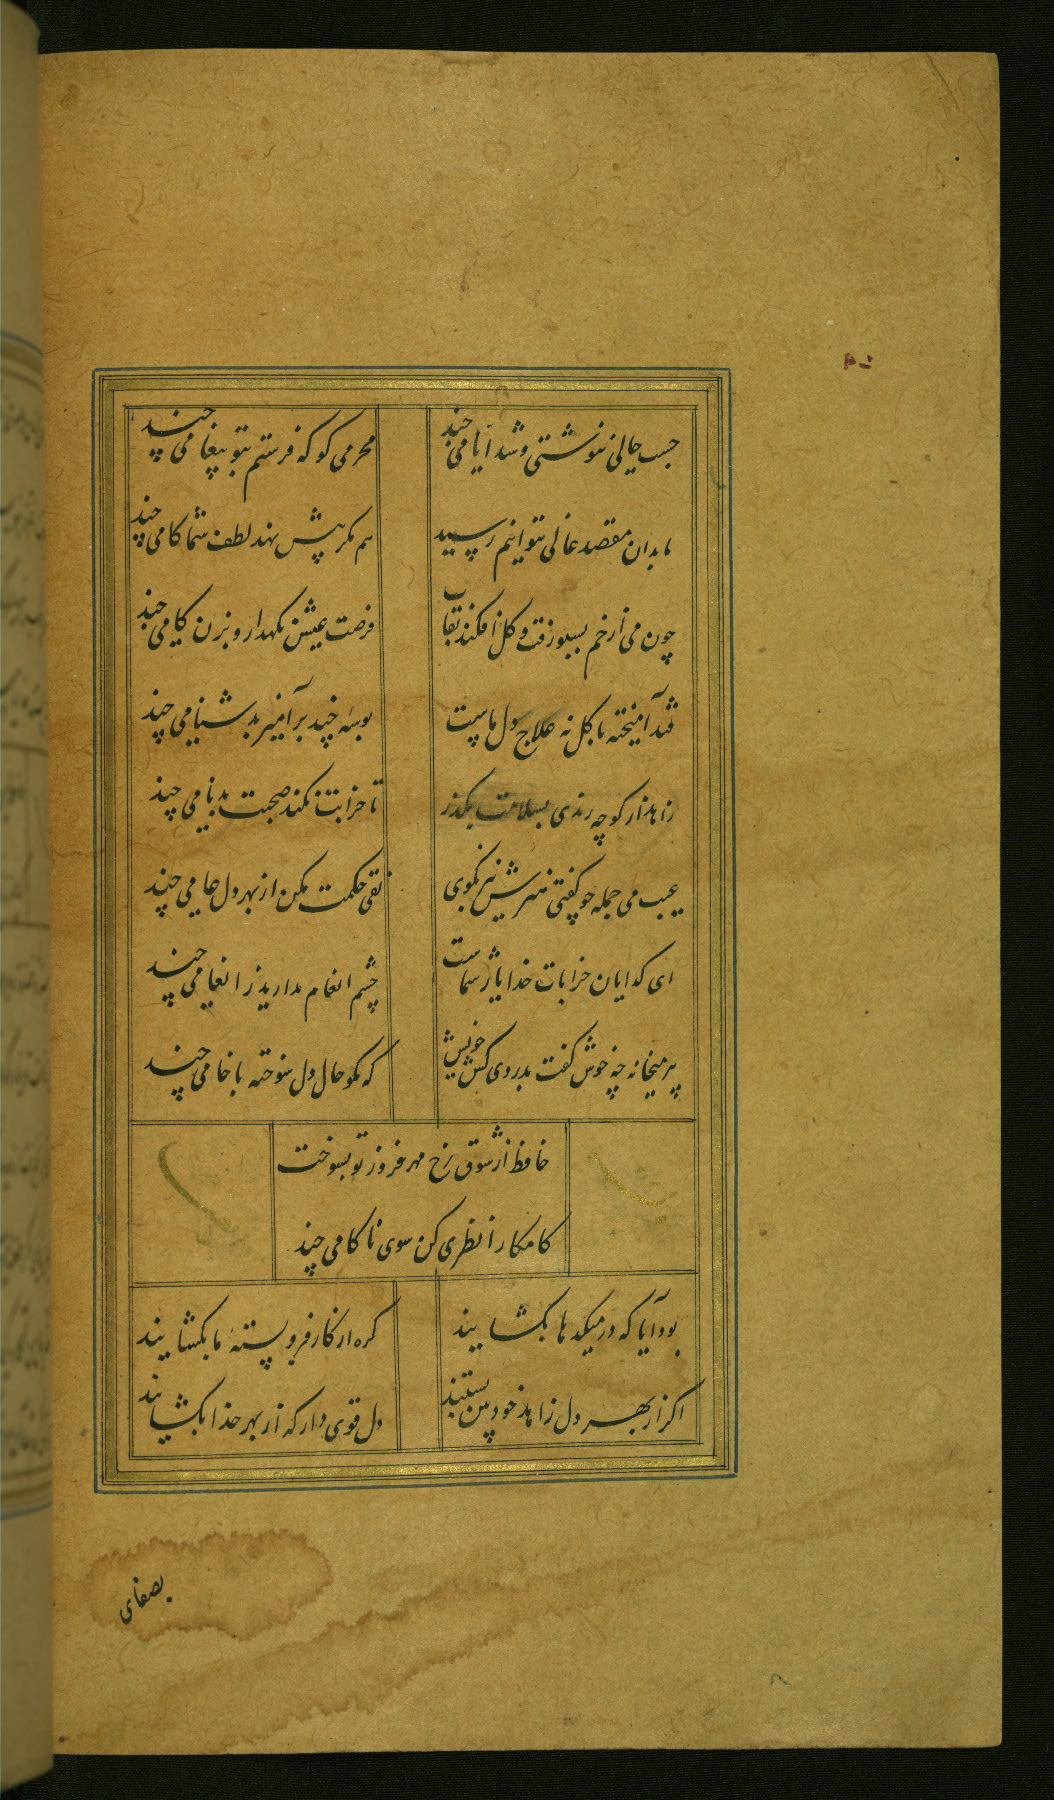 حسب حالی ننوشتی و شد ایامی چند
محرمی کو که فرستم بتو پیغامی چند
ما بدان مقصد عالی نتوانیم رسید
هم مگر پیش نهد لطف شما کامی چند
چون می از خم بسبو رفت و گل افکند نقاب
فرصت عیش نگهدار و بزن جامی چند
قند آمیخته با گل نه علاج دل ماست
بوسهٔ چند برآمیز بدشنامی چند
زاهد از کوچه رندی بسلامت بگذر
تا خرابت نکند صحبت بدنامی چند
عیب می جمله چو گفتی هنرش نیز بگوی
نفی حکمت مکن از بهر دل عامی چند
ای گدایان خرابات خدا یار شماست
چشم انعام مدارید ز انعامی چند
پیر میخانه چه خوش گفت بدردی کش خویش
که مگو حال دل سوخته با خامی چند
حافظ از شوق رخ مهر فروز تو بسوخت
کامکارا نظری کن سوی ناکامی چند
بود آیا که در میکدها بگشایند
گره از کار فرو بستهٔ ما بگشایند
اگر از بهر دل زاهد خودبین بستند
دل قوی دار که از بهر خدا بگشایند
بصفای